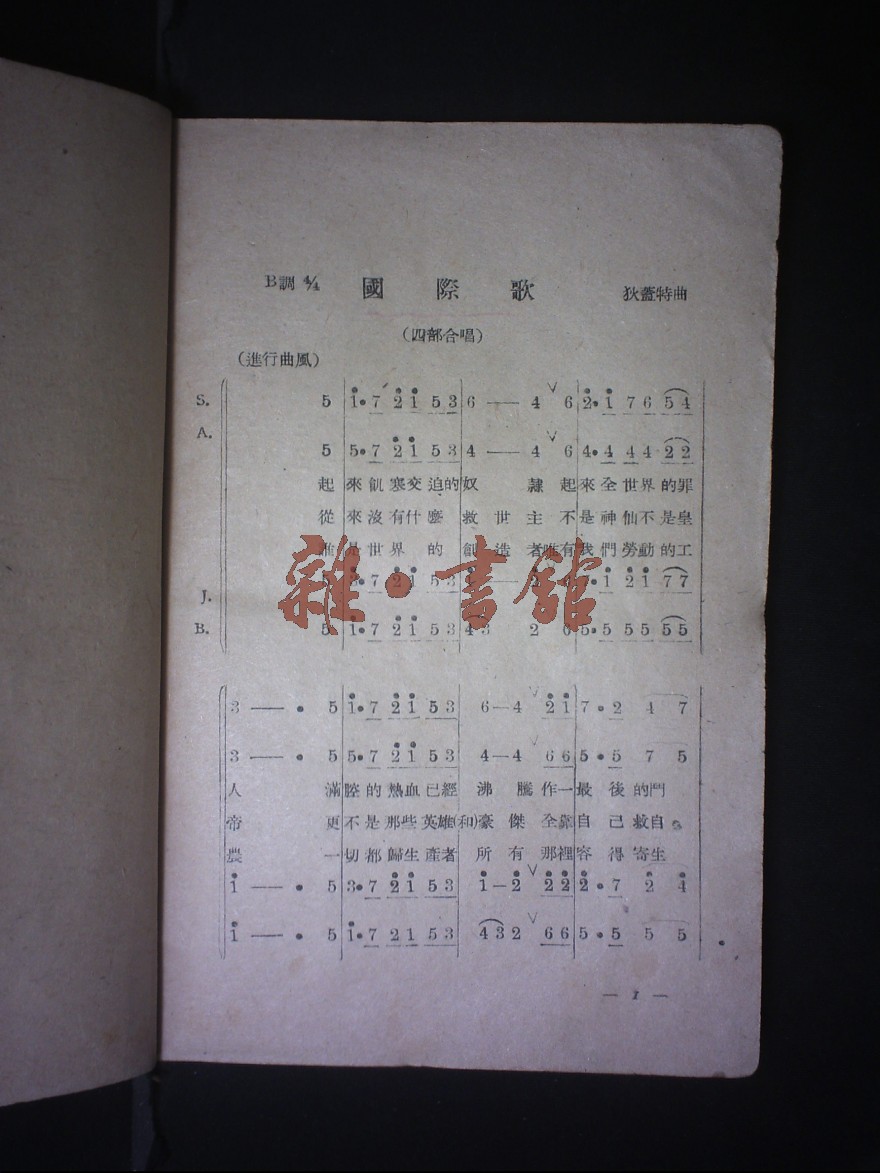 B調 4/4 國際歌 狄蓋特曲
(四部合唱)
(進行曲風)
S. 5 1·7 2 1 5 3 6 — 4 6 2·1 7 6 5 4
A. 5 5·7 2 1 5 3 4 — 4 6 4·4 4 4 2 2
起來飢寒交迫的奴 隸起來全世界的罪
從來沒有什麼救世主不是神仙不是皇
是世界的創造者唯有我們勞動的工
雜·書館
J. 3·7 2 1 5 3 2 1 2 1 7 7
B. 5 1·7 2 1 5 3 4 3 2 6 5·5 5 5 5 5
3 — · 5 1·7 2 1 5 3 6 — 4 2 1 7·2 4 7
3 — · 5 5·7 2 1 5 3 4 — 4 6 6 5·5 7 5
人 滿腔的熱血已經沸騰作一最後的鬥
帝 更不是那些英雄(和)豪傑全靠自己救自
農 一切都歸生產者所有那裡容得寄生
1 — · 5 3·7 2 1 5 3 1 — 2 2 2 2·7 2 4
1 — · 5 1·7 2 1 5 3 4 3 2 6 6 5·5 5 5
— 1 —